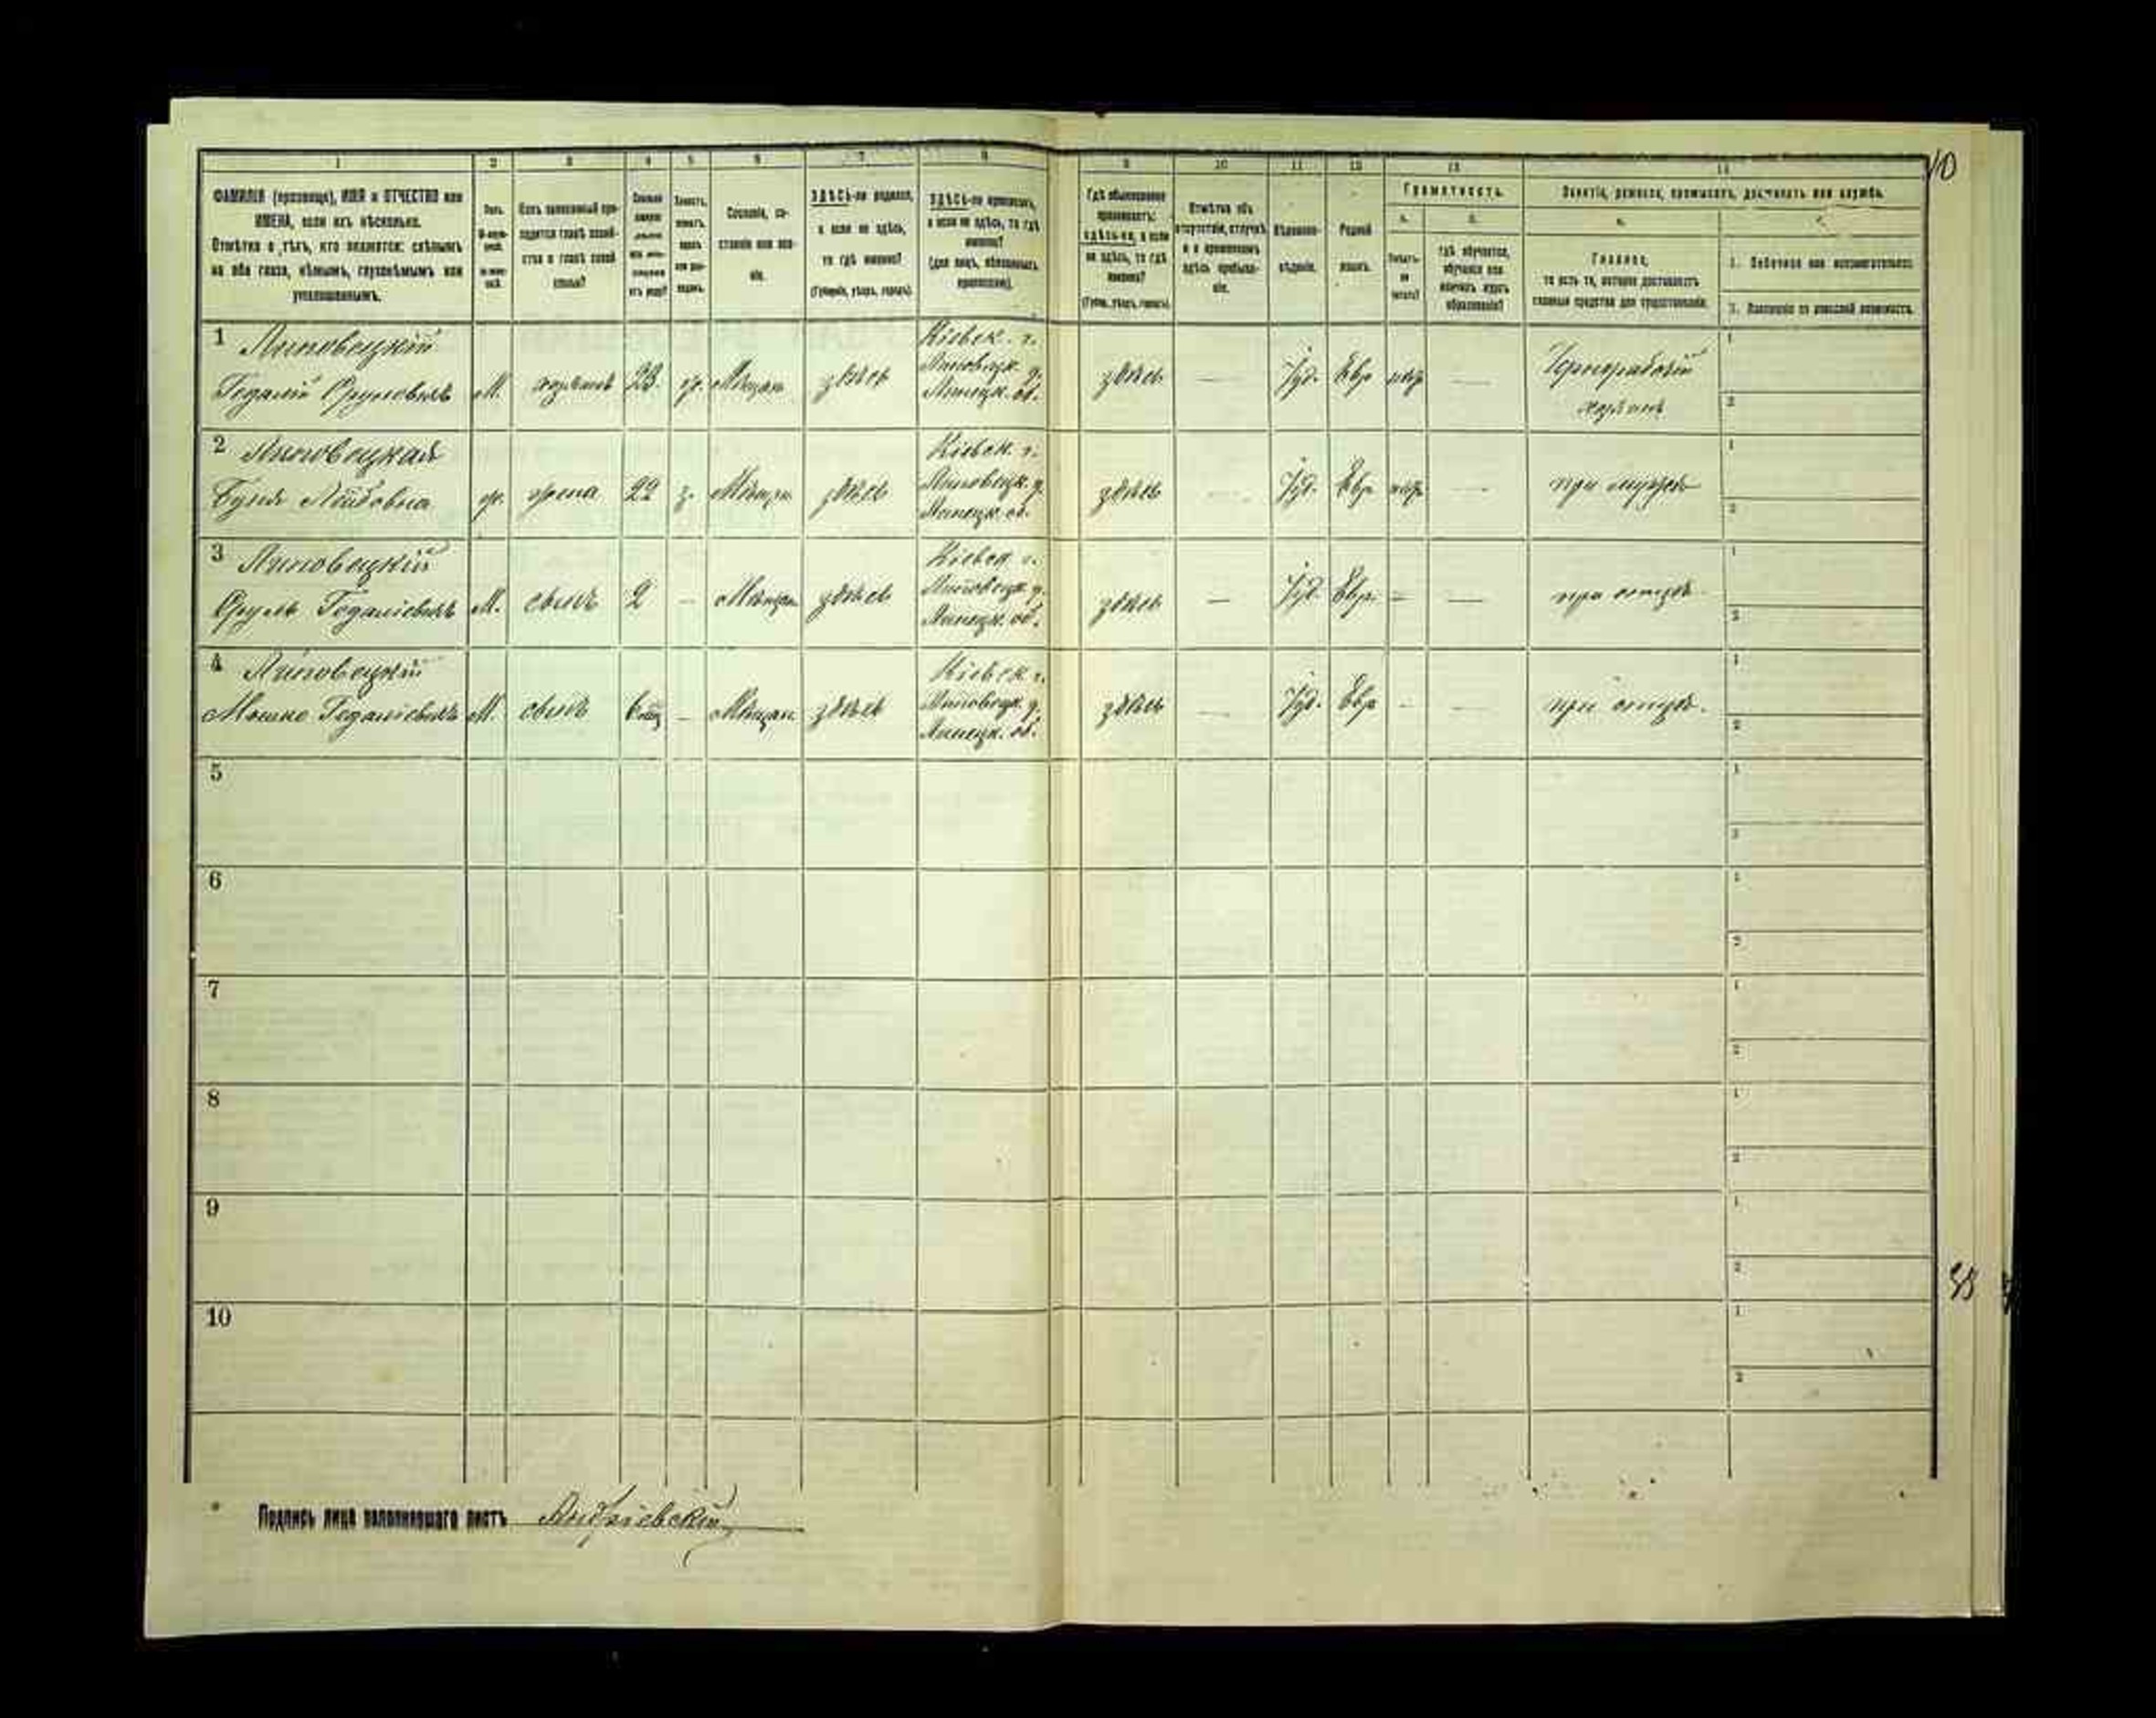 1 2 3 4 5 6 7 8 9 10 11 12 13 14
10
ФАМИЛІЯ (прозвище), ИМЯ и ОТЧЕСТВО или
ИМЕНА, если ихъ нѣсколько.
Отмѣтка о тѣхъ, кто окажется: слѣпымъ
на оба глаза, нѣмымъ, глухонѣмымъ или
умалишеннымъ.
Полъ.
Сословіе, со-
стояніе или зва-
ніе.
ЗДѢСЬ-ли родился,
а если не здѣсь,
то гдѣ именно?
(Губернія, уѣздъ, городъ).
ЗДѢСЬ-ли приписанъ,
а если не здѣсь, то гдѣ
именно?
(для лицъ, обязанныхъ
припискою).
Гдѣ обыкновенно
проживаетъ:
здѣсь-ли, а если
не здѣсь, то гдѣ
именно?
(Губерн., уѣздъ, городъ).
Отмѣтка объ
отсутствіи, отлучкѣ
и о временномъ
здѣсь пребыва-
ніи.
Вѣроиспо-
вѣданіе.
Родной
языкъ.
Грамотность.
а. б.
Умѣетъ-
ли
читать?
гдѣ обучается,
обучался или
кончилъ курсъ
образованія?
Занятіе, ремесло, промыселъ, должность или служба.
а.
Главное,
то есть то, которое доставляетъ
главныя средства для существованія.
1. Побочное или вспомогательное.
2. Положеніе по воинской повинности.
1 Липовецкій Кіевск. г.
Липовецк. у.
Гедалій Сруловичъ М. хозяинъ 23. ж. Мѣщан. здѣсь Липецк. об. здѣсь — Іуд. Евр нѣтъ — Чернорабочій
хозяинъ 1 2
2 Липовецкая Кіевск. г.
Липовецк. у.
Лейбовна ж. жена 22 з. Мѣщан. здѣсь Липецк. об. здѣсь — Іуд. Евр. нѣтъ — при мужѣ 1 2
3 Липовецкій Кіевск. г.
Липовецк. у.
Сруль Гедаліевичъ М. сынъ 2 — Мѣщан. здѣсь Липецк. об. здѣсь — Іуд. Евр. — — при отцѣ. 1 2
4 Липовецкій Кіевск. г.
Липовецк. у.
Мошко Гедаліевичъ М. сынъ — Мѣщан. здѣсь Липецк. об. здѣсь — Іуд. Евр — — при отцѣ. 1 2
5 1 2
6 1 2
7 1 2
8 1 2
9 1 2
10 1 2
Подпись лица заполнившаго листъ Андріевскій